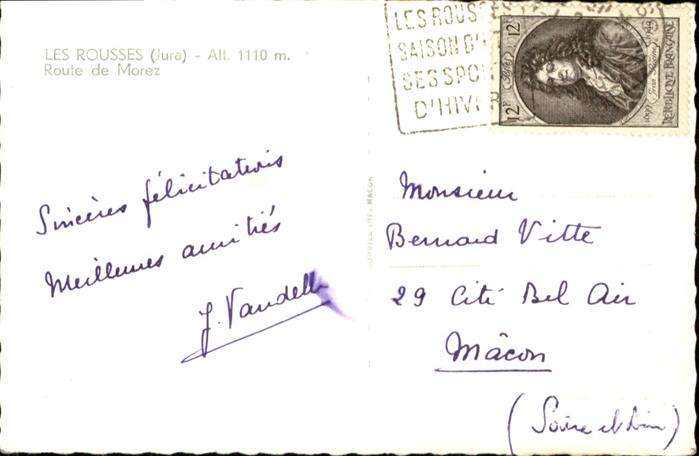 LES ROUSSES (Jura) - Alt. 1110 m.
Route de Morez
LES ROUS
SAISON D'
SES SPO
D'HIVER
12F
12F
RÉPUBLIQUE FRANÇAISE
Sincères félicitations
Meilleures amitiés
J. Vandelle
MACON
Monsieur
Bernard Vitte
29 Cité Bel Air
Mâcon
(Saône et Loire)